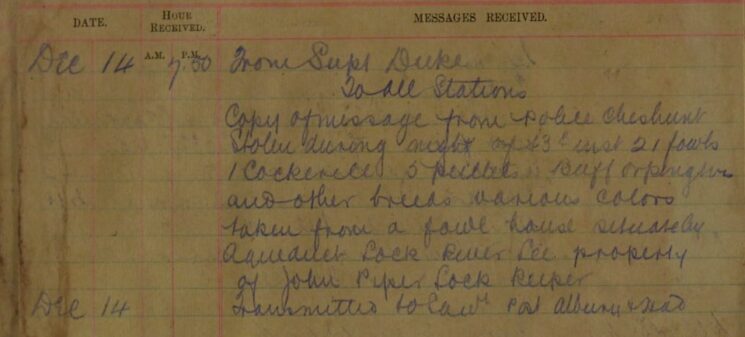 DATE. HOUR RECEIVED. MESSAGES RECEIVED.
A.M. P.M.
Dec 14 7.50 From Supt Duke
To all Stations
Copy of message from Police Cheshunt
Stolen during night of 13th inst 21 fowls
1 Cockerell 5 pullets Buff orpingtons
and other breeds various colors
taken from a fowl house situate by
Aqueduct Lock River Lee property
of John Piper Lock Keeper
Dec 14 Transmitted to Post Albury